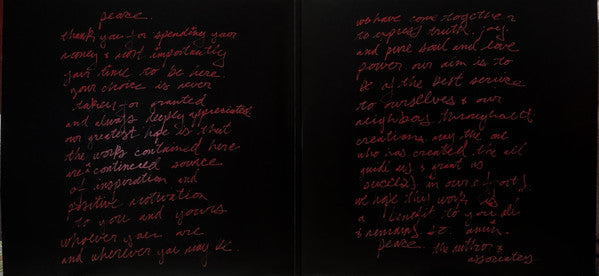 peace.
thank you for spending your
money & most importantly
your time to be here.
your choice is never
taken for granted
and always deeply appreciated
our greatest hope is that
the works contained here
are a continued source
of inspiration and
positive motivation
to you and yours
whoever you are
and wherever you may be.
we have come together
to express truth, joy,
and pure soul and love
power. our aim is to
be of the best service
to ourselves & our
neighbors throughout
creation. may the one
who has created the all
guide us & grant us
success in our efforts.
we hope this work is
a benefit to you all
& remains so.
peace. the author &
associates